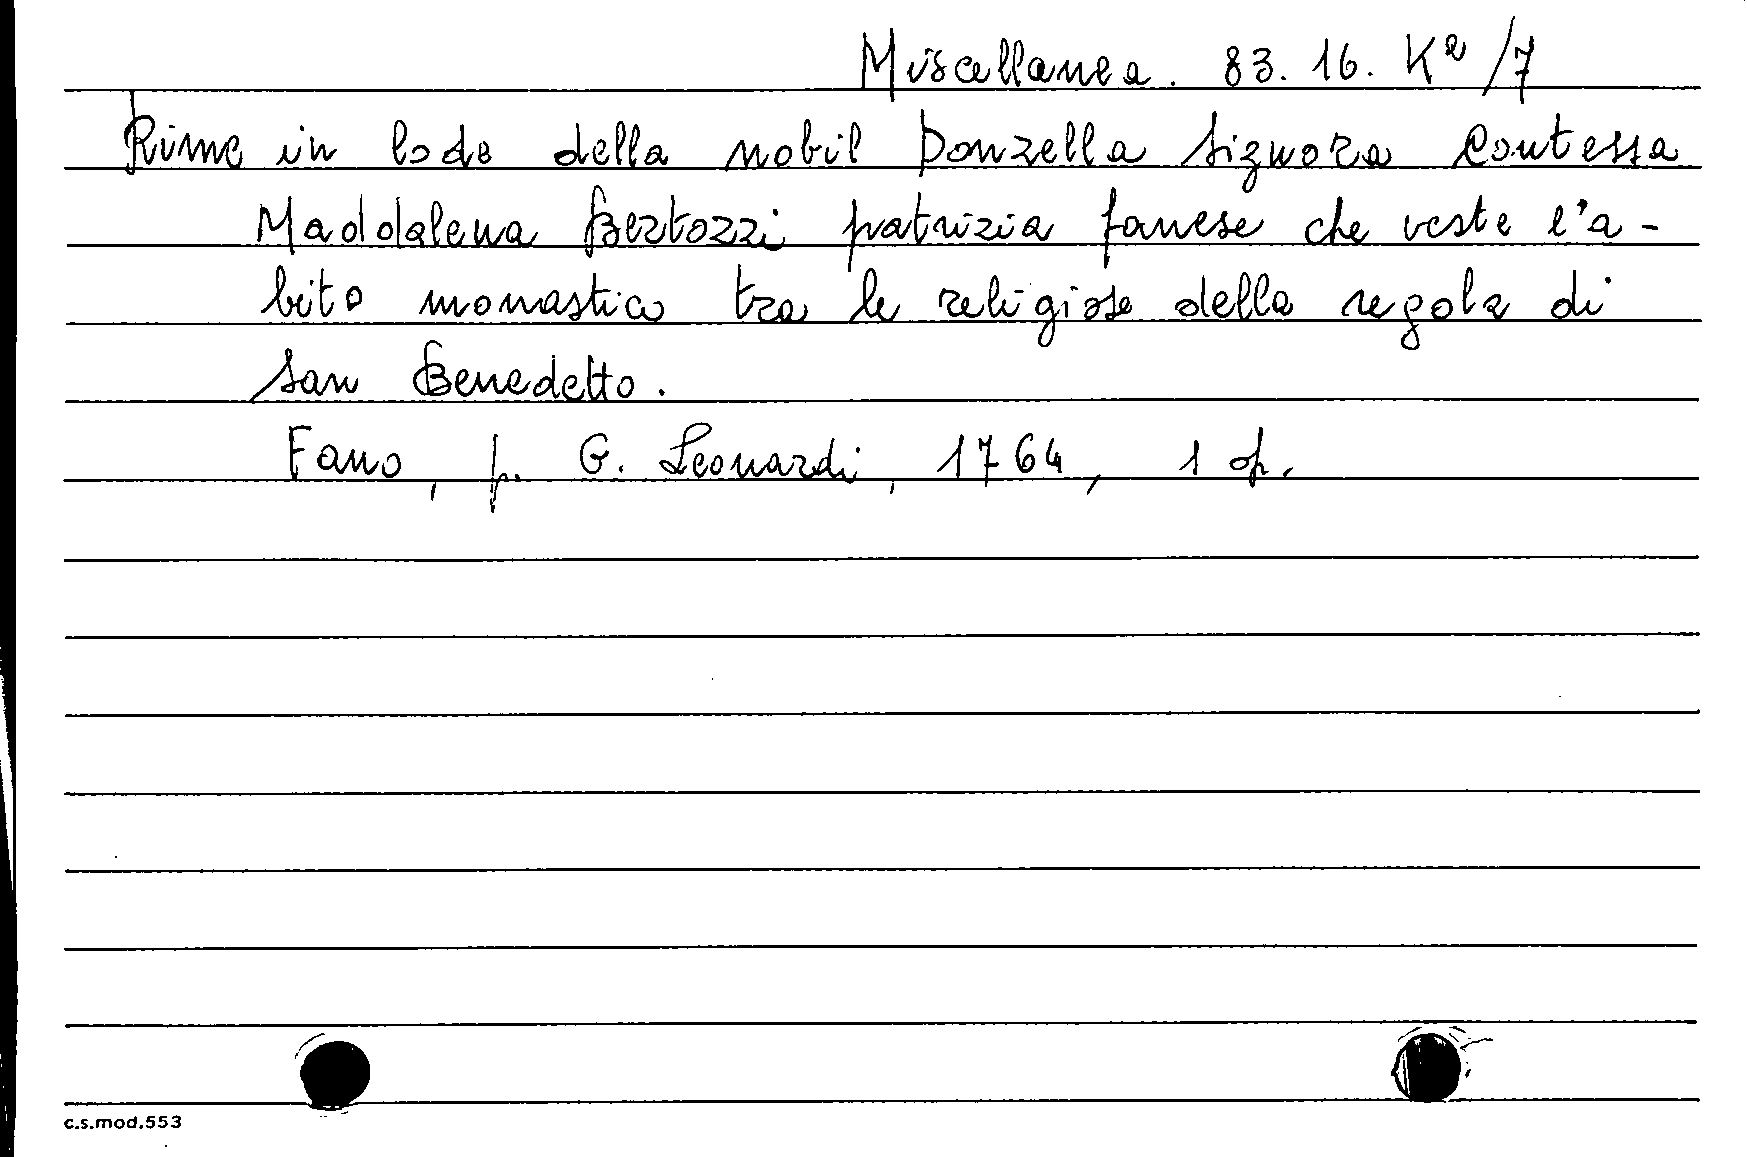 Miscellanea. 83. 16. Ka /7
Rime in lode della nobil Donzella Signora Contessa
Maddalena Bertozzi patrizia fanese che veste l'a-
bito monastico tra le religiose della regola di
San Benedetto.
Fano, p. G. Leonardi, 1764, 1 op.
c.s.mod.553